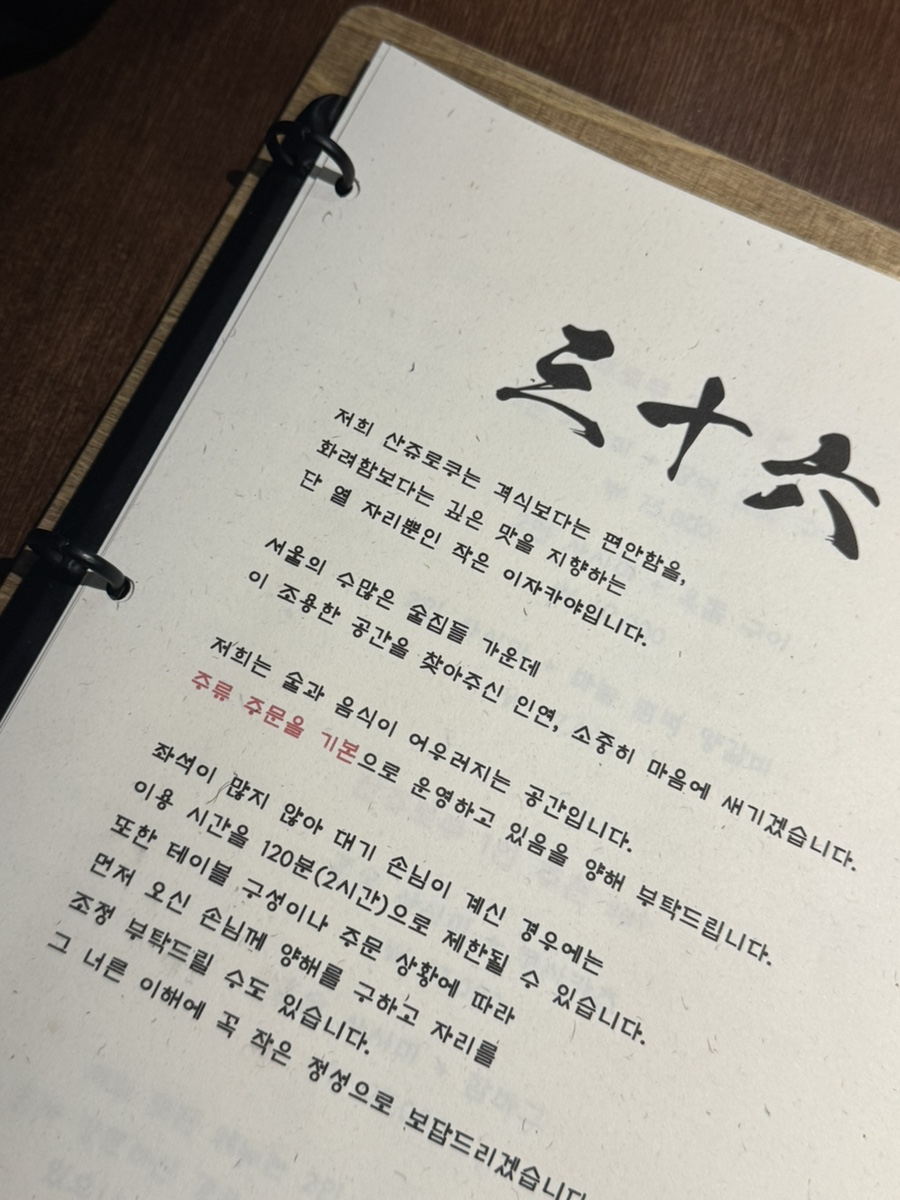 三十六
저희 산쥬로쿠는 격식보다는 편안함을,
화려함보다는 깊은 맛을 지향하는
단 열 자리뿐인 작은 이자카야입니다.
서울의 수많은 술집들 가운데
이 조용한 공간을 찾아주신 인연, 소중히 마음에 새기겠습니다.
저희는 술과 음식이 어우러지는 공간입니다.
주류 주문을 기본으로 운영하고 있음을 양해 부탁드립니다.
좌석이 많지 않아 대기 손님이 계신 경우에는
이용 시간을 120분(2시간)으로 제한될 수 있습니다.
또한 테이블 구성이나 주문 상황에 따라
먼저 오신 손님께 양해를 구하고 자리를
조정 부탁드릴 수도 있습니다.
그 너른 이해에 꼭 작은 정성으로 보답드리겠습니다